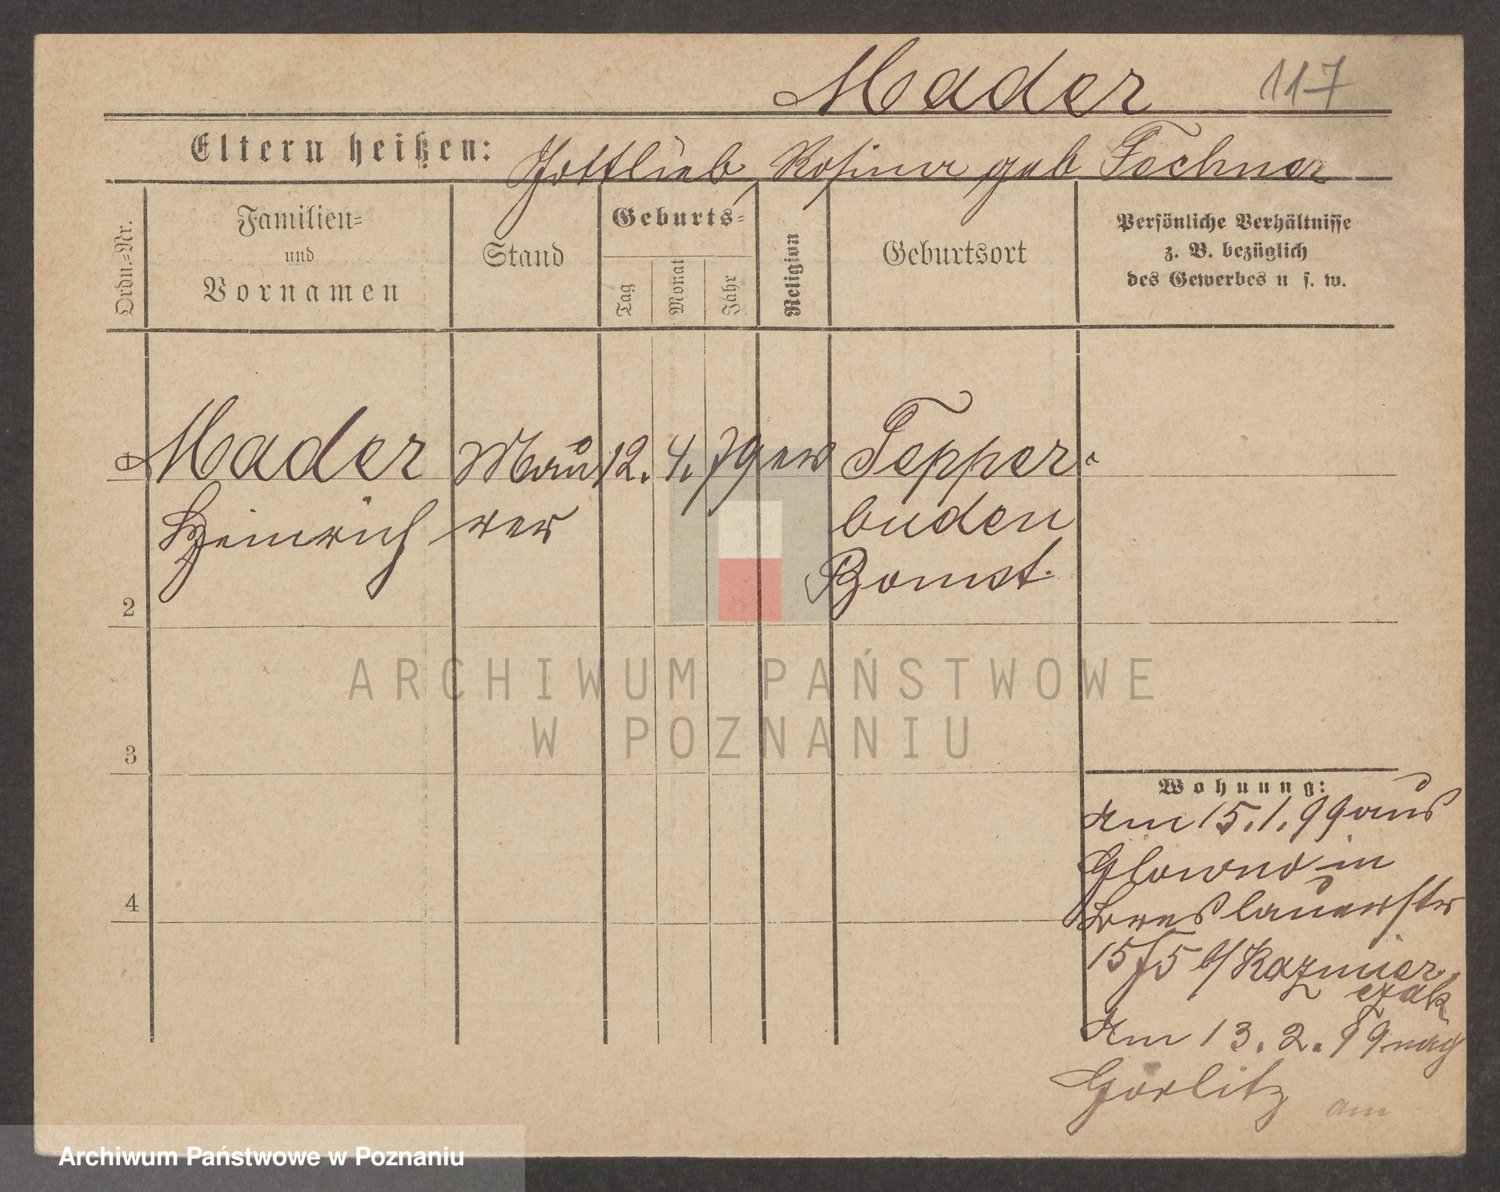 Mader 117
Eltern heißen: Gottlieb, Rosina geb Fechner
Ordn.=Nr.
Familien=
und
Vornamen
Stand
Geburts=
Tag
Monat
Jahr
Religion
Geburtsort
Persönliche Verhältnisse
z. B. bezüglich
des Gewerbes u s. w.
Mader Mau 12. 4. 79 ev Tepper-
Heinrich rer buden
Bomst.
2
3
4
Wohnung:
Am 15.1.99 aus
Glowno in
Breslauerstr
15/5 b/ Kazmier
czak
Am 13.2.99 nach
Görlitz am
ARCHIWUM PAŃSTWOWE
W POZNANIU
Archiwum Państwowe w Poznaniu